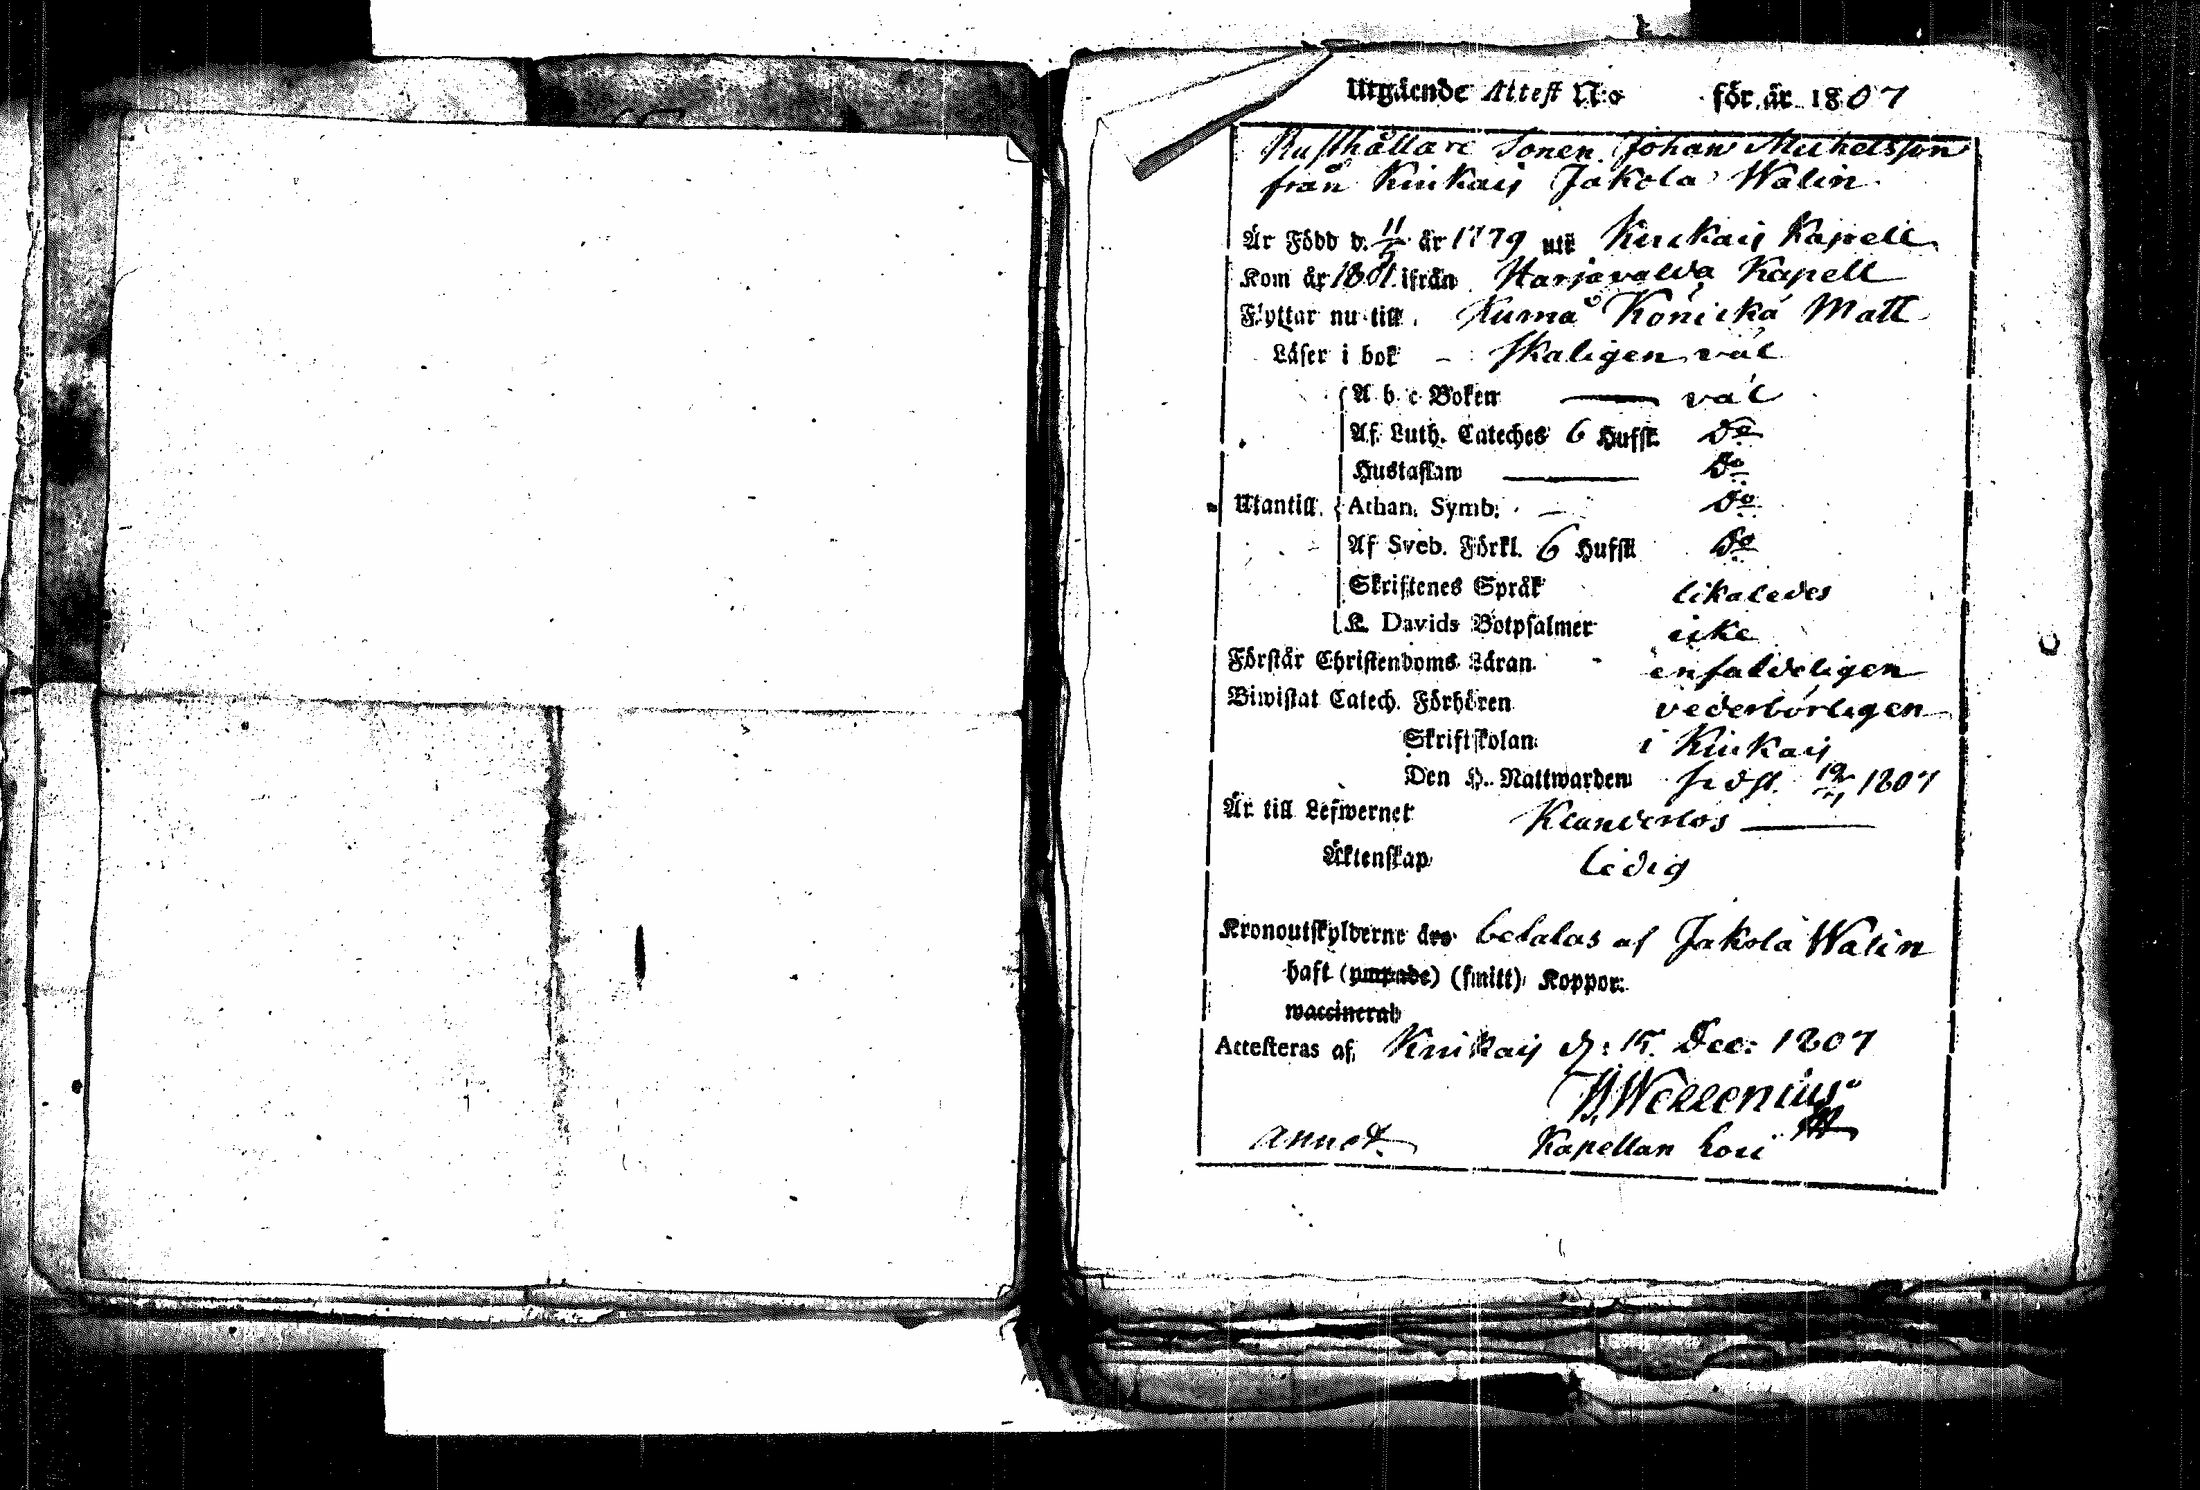 Utgående Attest No för år 1807
Rusthållare Sonen Johan Michelsson
från Kiukais Jakola Walin
Är Född d. 11/5 år 1779 uti Kiukais Kapell
Kom år 1801 ifrån Harjavalda Kapell
Flyttar nu till Kumå Matt
Läser i bok - skaligen väl
A b c Boken — väl
Af Luth. Cateches 6 Hufst. do
Hustaflan — do
Utantill Athan. Symb. — do
Af Sveb. Förkl. 6 Hufst do
Skriftenes Språk likaledes
K. Davids Botpsalmer icke
Förstår Christendoms Läran - enfaldeligen
Biwistat Catech. Förhören vederbörligen
Skriftskolan i Kiukais
Den H. Nattwarden sidst 1807
Är till Lefwernet Klanderlös —
Äktenskap ledig
Kronoutskylderne äro betalas af Jakola Walin
haft (ympade) (smitt) Koppor.
waccinerad
Attesteras af Kiukais d: 15. Dec: 1807
Wellenius
annot. Kapellan loci